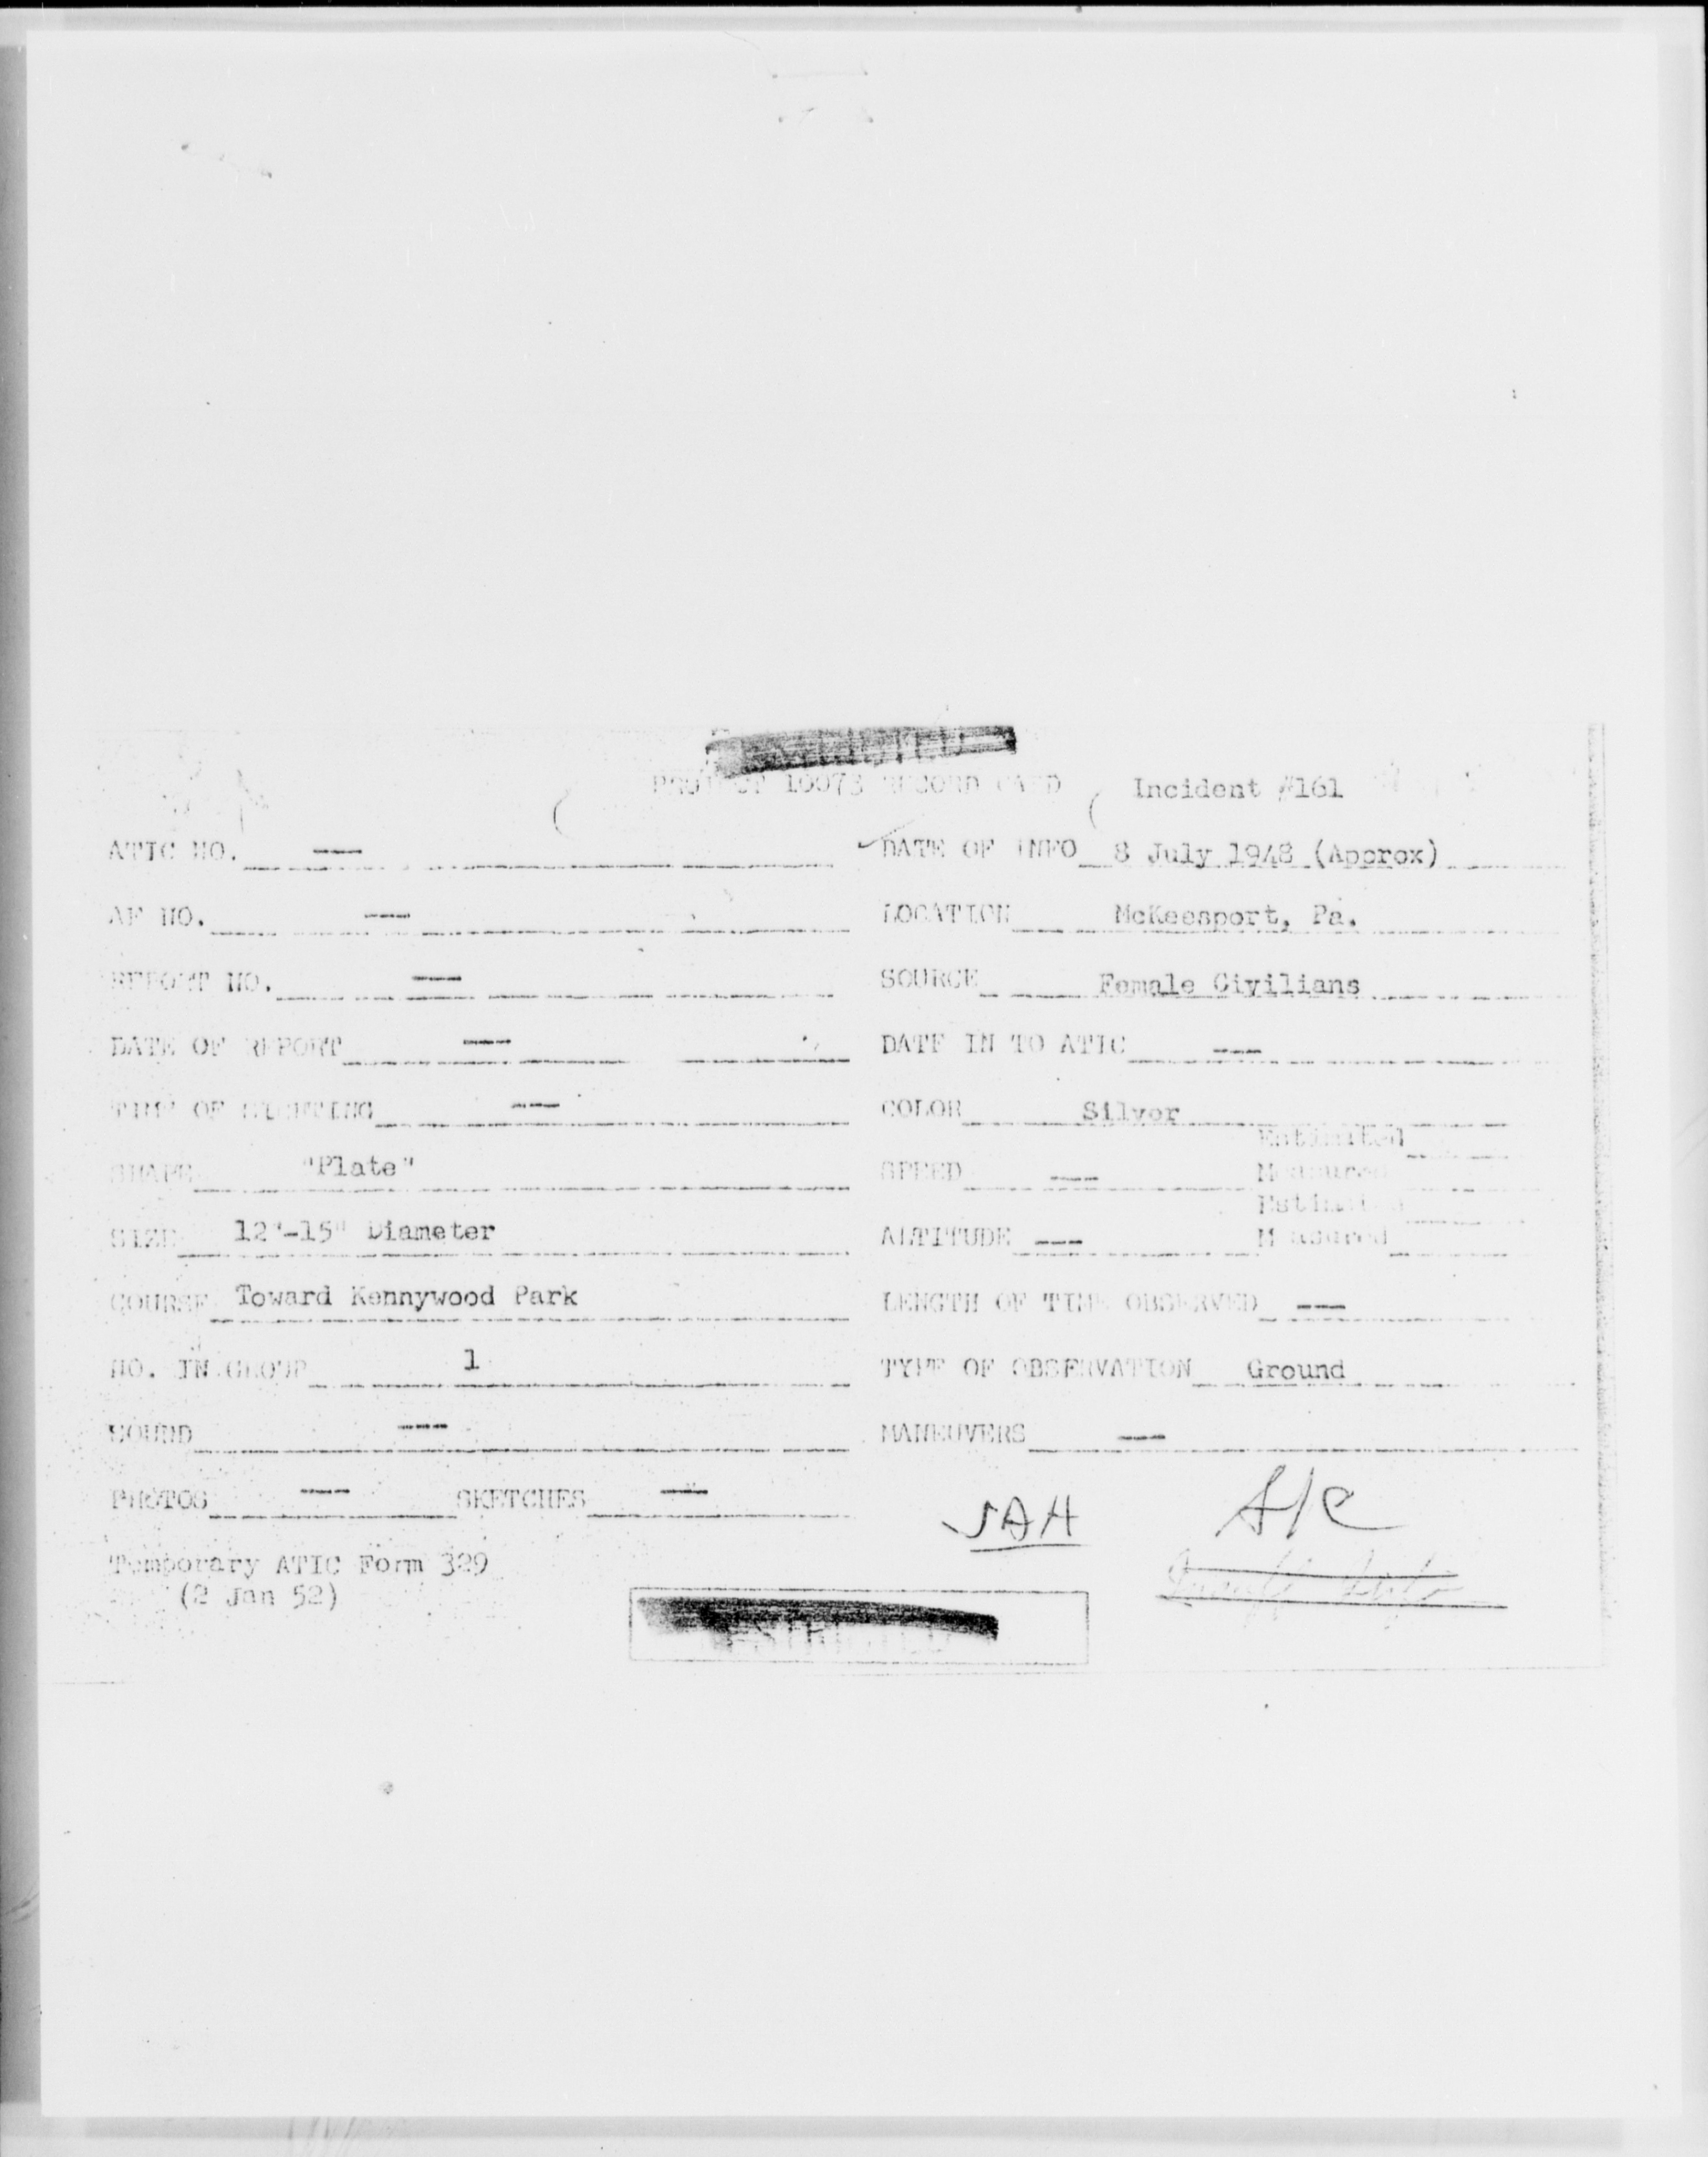 PROJECT 10073 RECORD CARD Incident #161
ATIC NO. — DATE OF INFO 8 July 1948 (Approx)
AF NO. — LOCATION McKeesport, Pa.
REPORT NO. — SOURCE Female Civilians
DATE OF REPORT — DATE IN TO ATIC —
TIME OF SIGHTING — COLOR Silver
SHAPE "Plate" SPEED — Estimated
Measured
SIZE 12"-15" Diameter ALTITUDE — Estimated
Measured
COURSE Toward Kennywood Park LENGTH OF TIME OBSERVED —
NO. IN GROUP 1 TYPE OF OBSERVATION Ground
SOUND — MANEUVERS —
PHOTOS — SKETCHES —
JAH
Temporary ATIC Form 329
(2 Jan 52)
RESTRICTED